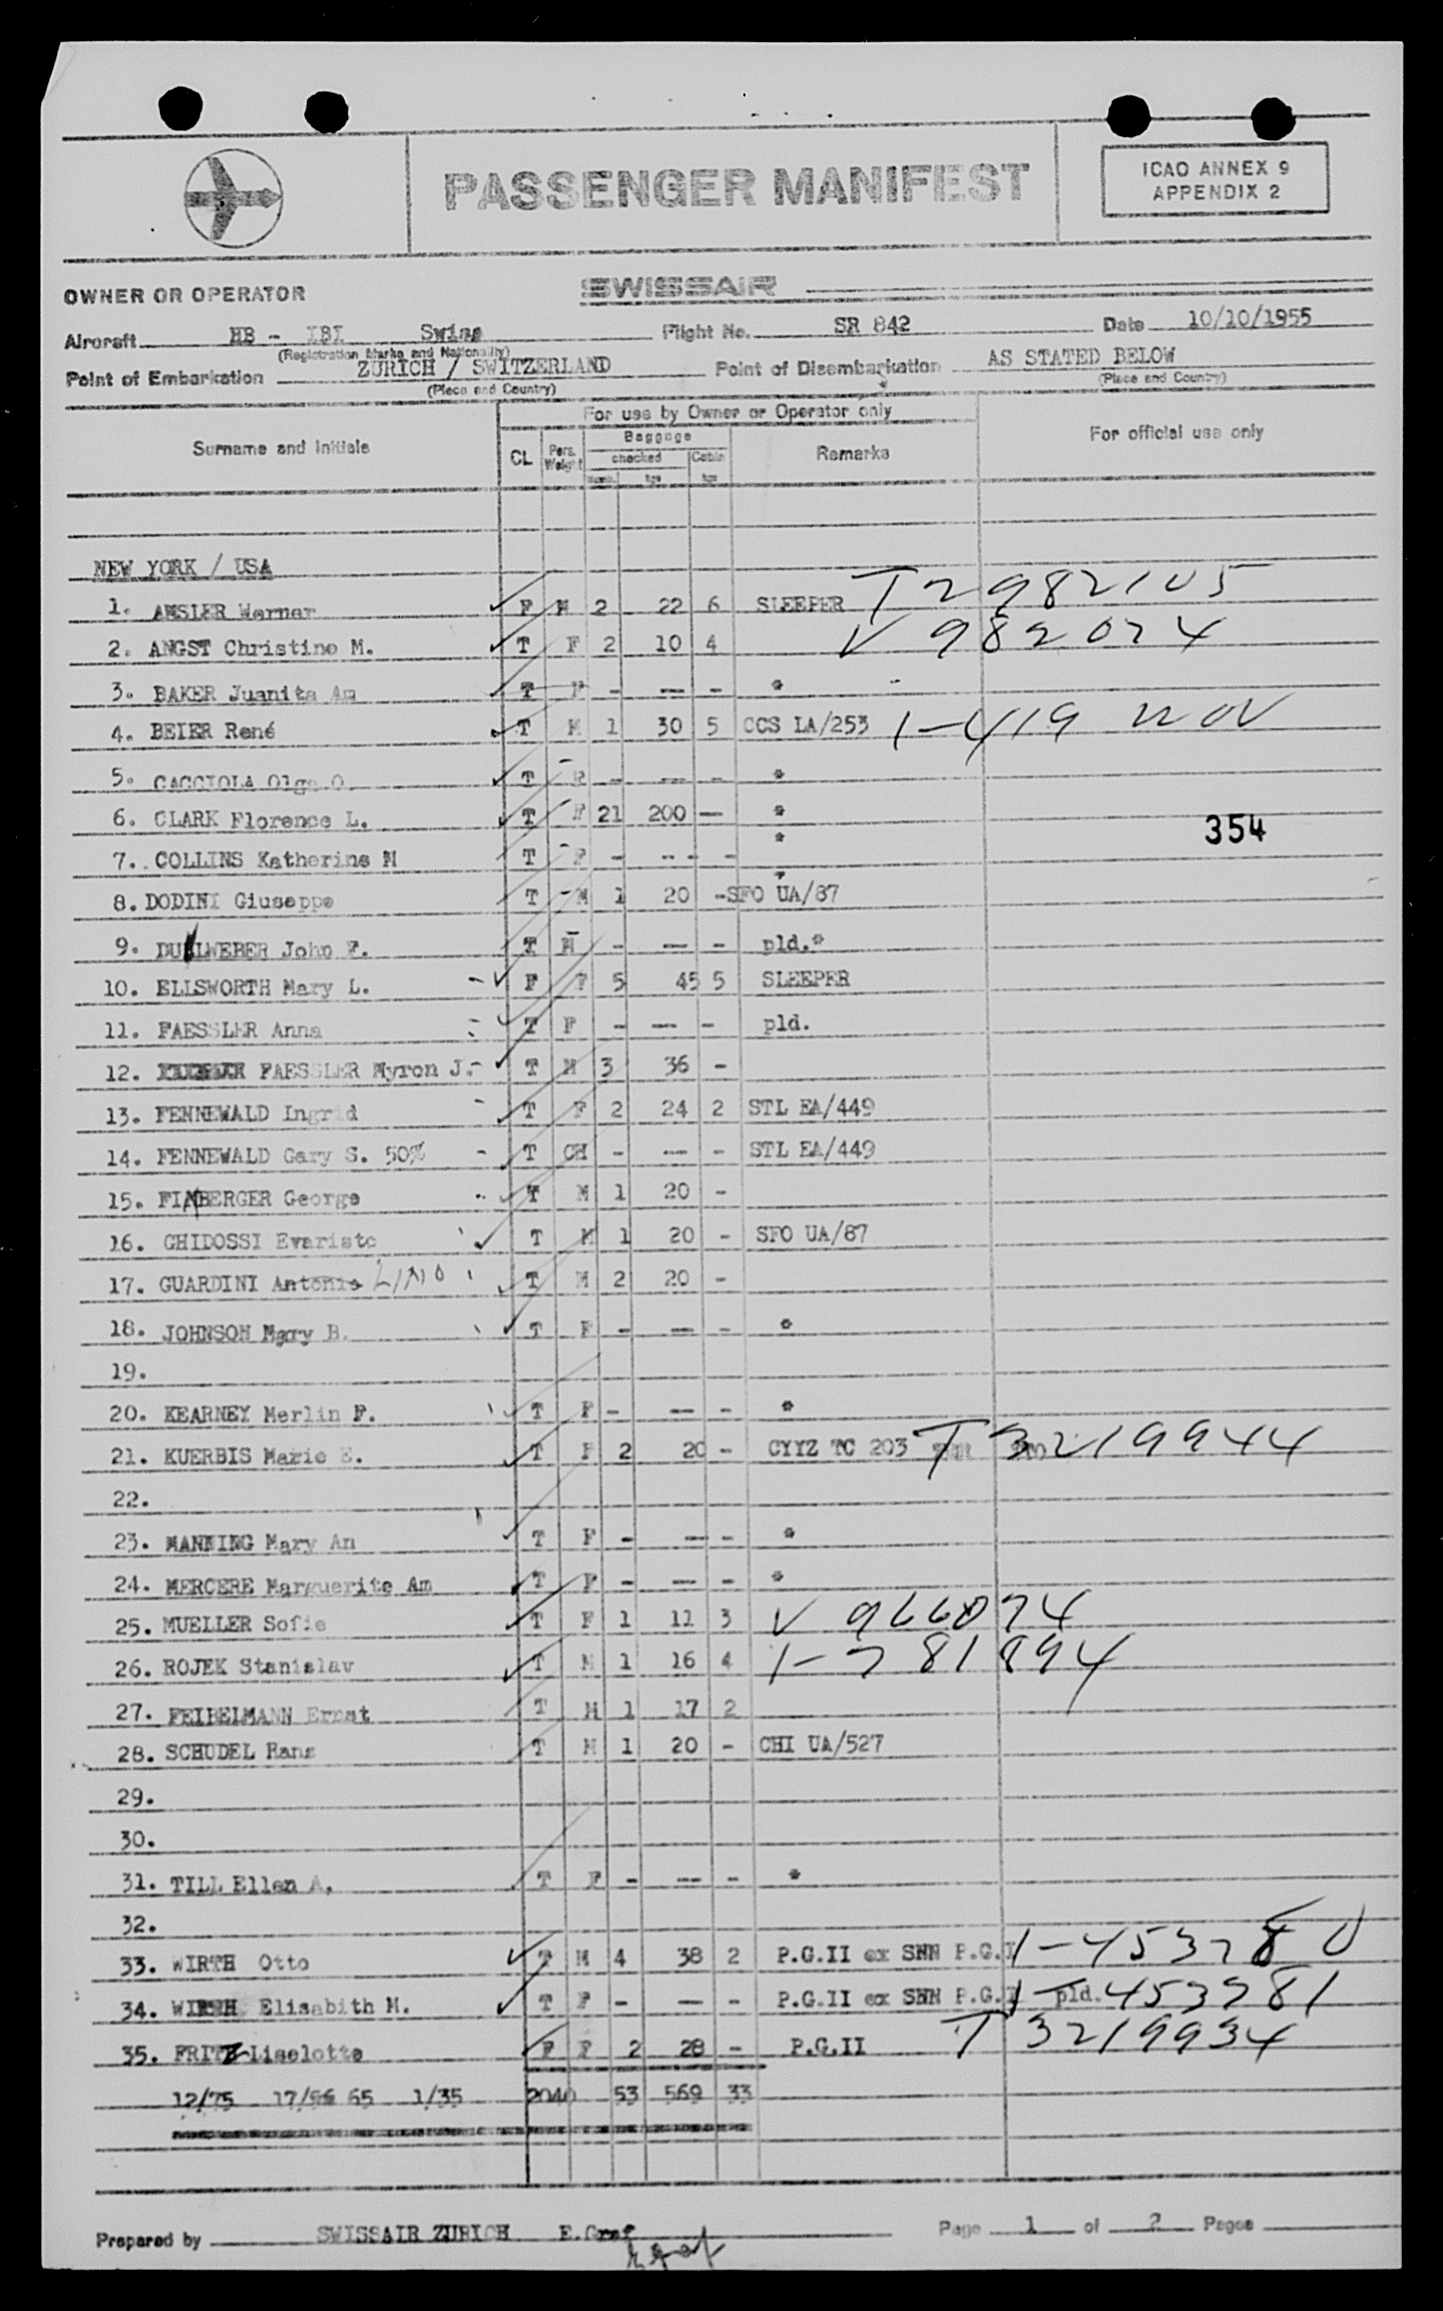 PASSENGER MANIFEST
ICAO ANNEX 9
APPENDIX 2
OWNER OR OPERATOR SWISSAIR
Aircraft HB - IBI Swiss Flight No. SR 842 Date 10/10/1955
(Registration Marks and Nationality)
Point of Embarkation ZURICH / SWITZERLAND Point of Disembarkation AS STATED BELOW
(Place and Country) (Place and Country)
Surname and Initials CL Pers. Weight For use by Owner or Operator only Baggage checked Cabin Numb. kgs kgs Remarks For official use only
NEW YORK / USA
1. AMSLER Werner F M 2 22 6 SLEEPER T 2982105
2. ANGST Christine M. T F 2 10 4 V 982074
3. BAKER Juanita Am T F - — - *
4. BEIER René T M 1 30 5 CCS LA/253 1-419 nov
5. CACCIOLA Olga O. T F - — - *
6. CLARK Florence L. T F 21 200 — *
354
7. COLLINS Katherine M T F - --- - *
8. DODINI Giuseppe T M 1 20 - SFO UA/87
9. DULLWEBER John F. T M - — - pld.*
10. ELLSWORTH Mary L. F F 5 45 5 SLEEPER
11. FAESSLER Anna T F - — - pld.
12. FAESSLER Myron J. T M 3 36 -
13. FENNEWALD Ingrid T F 2 24 2 STL EA/449
14. FENNEWALD Gary S. 50% T CH - — - STL EA/449
15. FINBERGER George T M 1 20 -
16. GHIDOSSI Evaristo T M 1 20 - SFO UA/87
17. GUARDINI Antonio LINO T M 2 20 -
18. JOHNSON Mary B. T F - — - *
19.
20. KEARNEY Merlin F. T F - — - *
21. KUERBIS Marie E. T F 2 20 - CYYZ TC 203 T 3219944
22.
23. MANNING Mary An T F - — - *
24. MERCERE Marguerite Am T F - — - *
25. MUELLER Sofie T F 1 11 3 V 966074
26. ROJEK Stanislav T M 1 16 4 1-781894
27. FEIBELMANN Ernst T M 1 17 2
28. SCHUDEL Hans T M 1 20 - CHI UA/527
29.
30.
31. TILL Ellen A. T F - — - *
32.
33. WIRTH Otto T M 4 38 2 P.G.II ex SNN P.G.I 1-453780
34. WIRTH Elisabith M. T F - — - P.G.II ex SNN P.G.I pld. 1-453781
35. FRITZ Liselotte F F 2 28 - P.G.II T 3219934
12/75 17/56 65 1/35 2040 53 569 33
Prepared by SWISSAIR ZURICH E.Graf Page 1 of 2 Pages
Graf